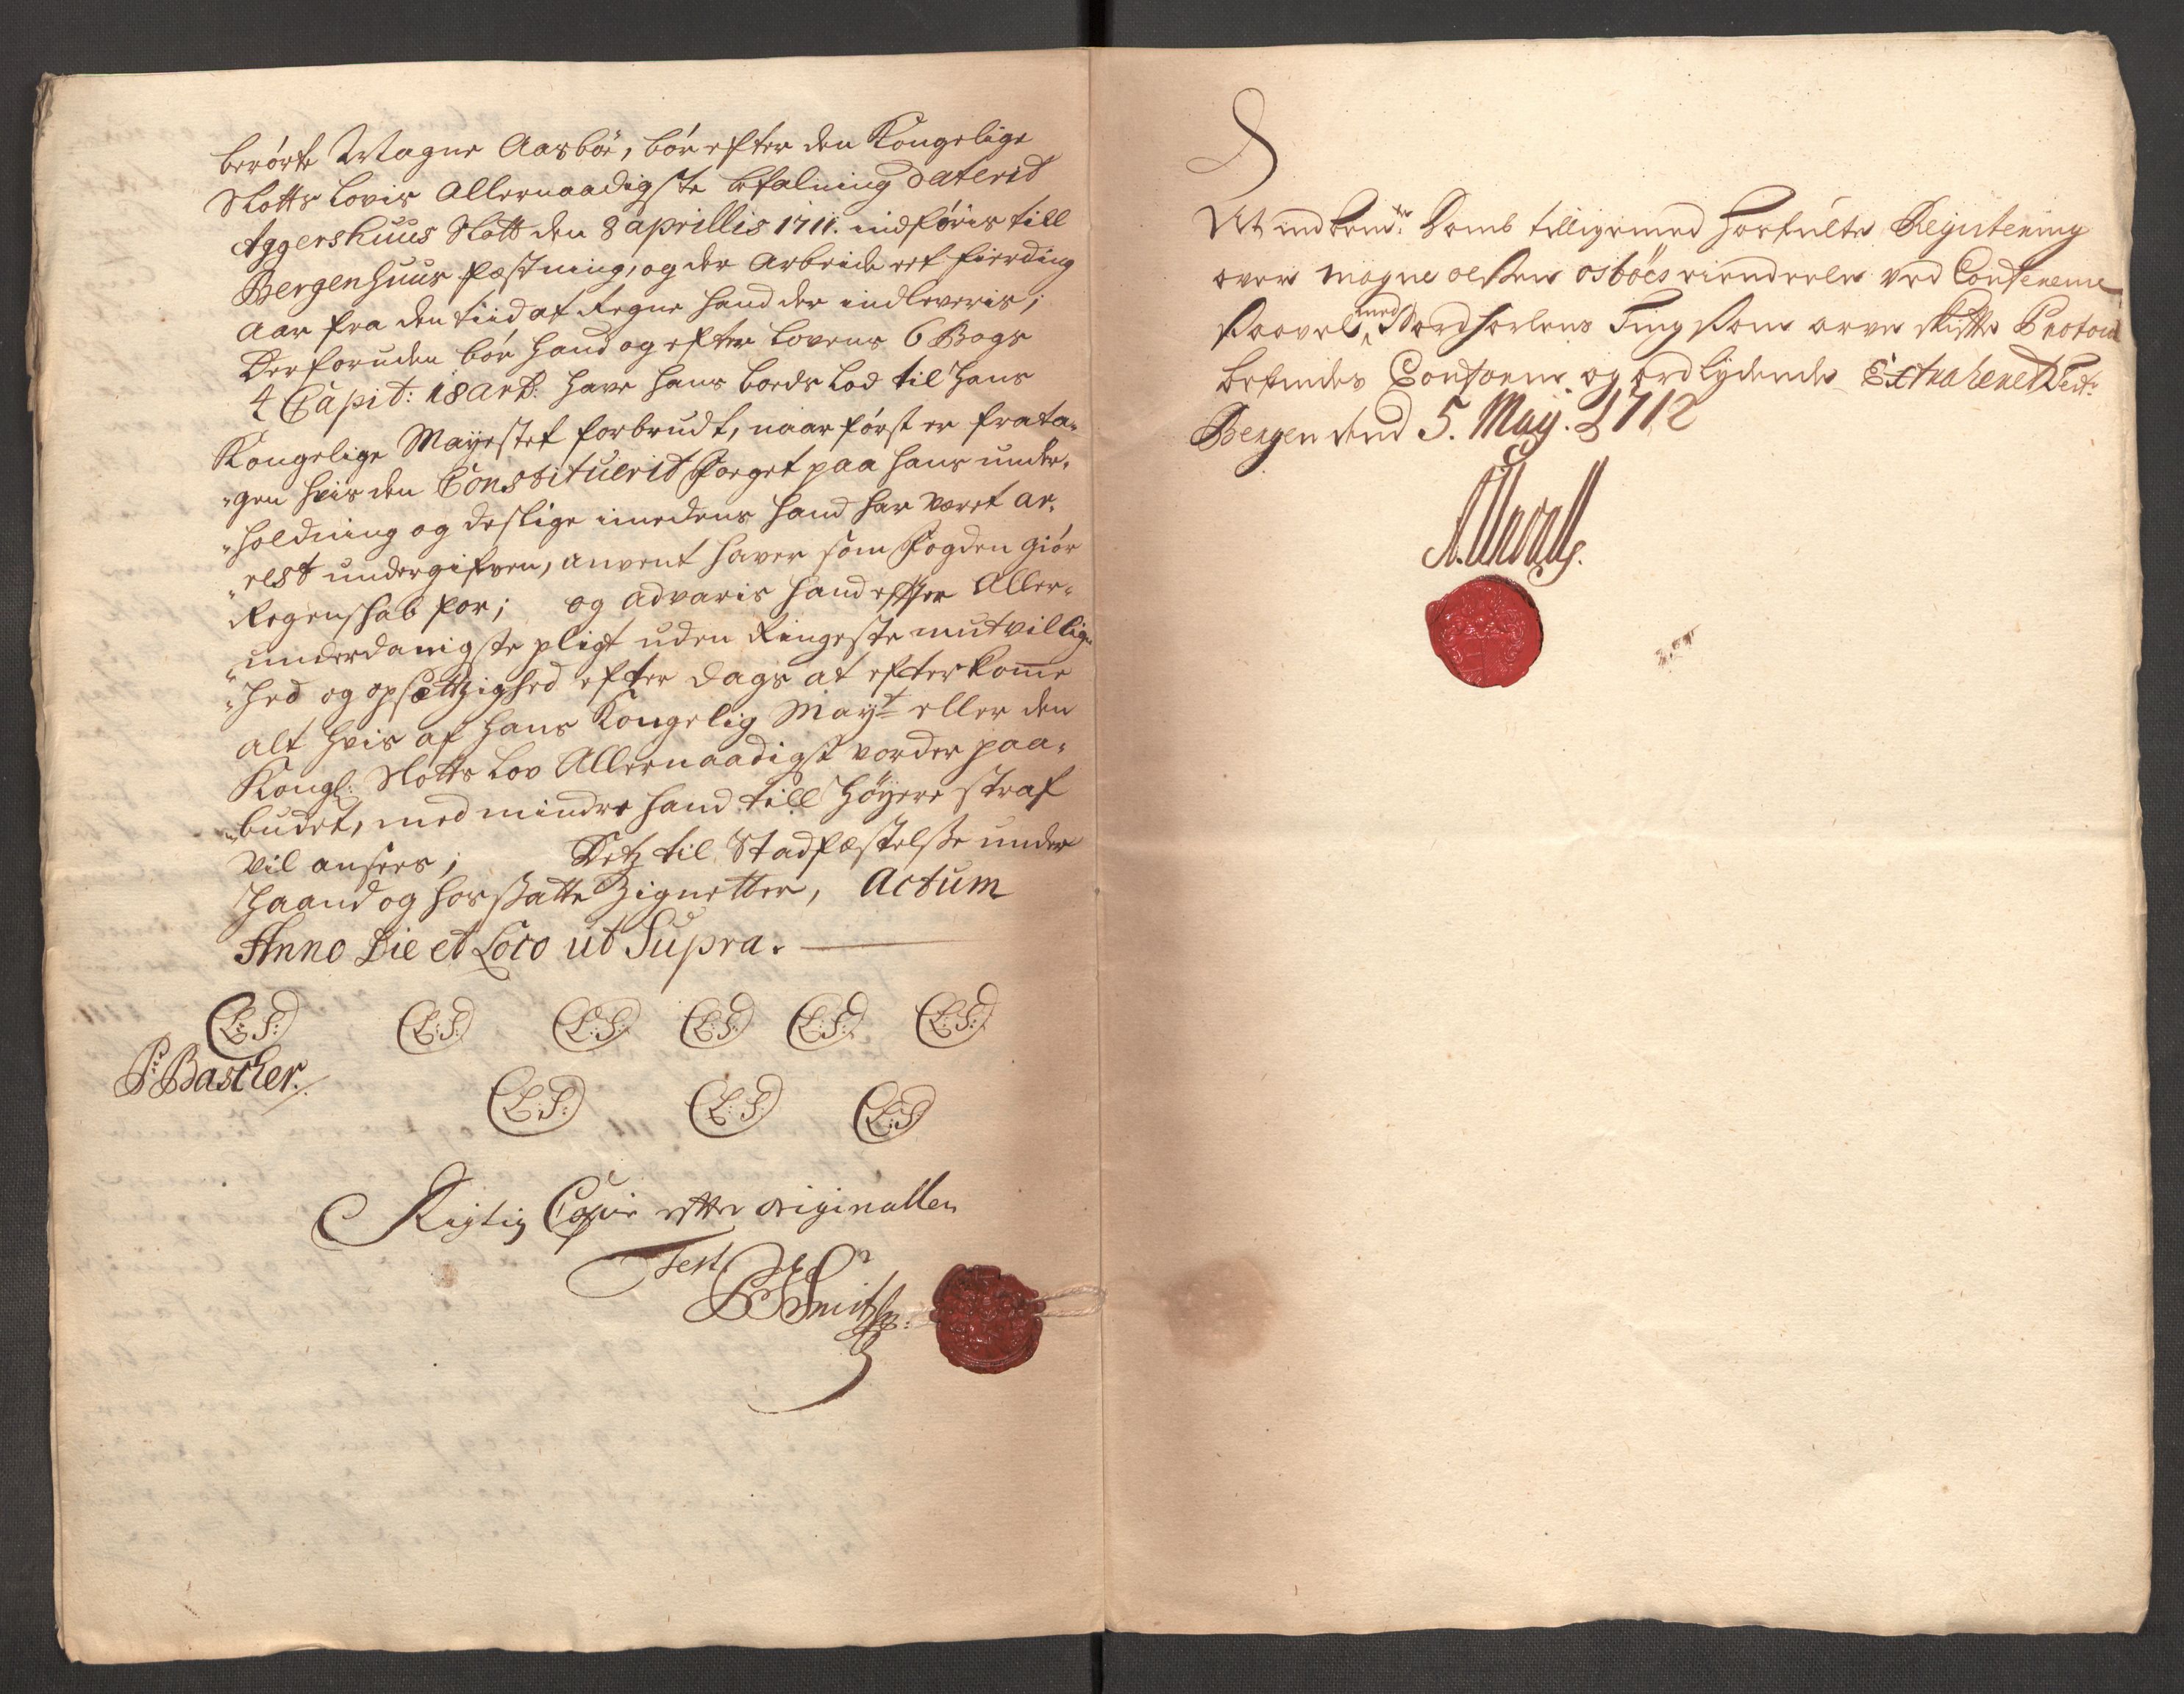 berørte Magne Aasbøe, bør efter den Kongelige
Slotts Lovis Allernaadigste befalning Daterid
Aggershuus Slott den 8 aprillis 1711. indføris till
Bergenhuus fæstning, og der Arbeide eet fierding
Aar fra den tiid at Regne hand der indleveris;
Derforuden bør hand og efter Lovens 6 Bogs
4 Capit: 18 art: have hans boeds Lod til hans
Kongelige Mayestet forbrudt, naar først er frata-
„gen hvis den Constituerid Foeget paa hans under-
„holdning og deslige imedens hand har Været ar-
„rest undergifven, anvent haver som Fogden giør
Regenschab for; og advaris hand efter Aller-
„underdanigste pligt uden Ringeste mutvillig-
„hed og opsættzighed efter dags at efterkome
alt hvis af hans Kongelig Mayt eller den
Kongl: Slotts Lov Allernaadigst vorder paa-
„budet, med mindre hand till høyere straf
vil ansees; Detz til Stadfæstelsse under
haand og hossatte Zignetter, Actum
Anno Die et Loco ut Supra.
L:S: L:S: L:S: L:S: L:S: L:S:
P: Bascher.
L:S: L:S: L:S:
Rigtig Copie efter originallen
Test
Smith
At indbem:te Domb tilligemed hosfulte Registering
over Magne olsens osbøes eiendeele ved Confererne
saavel med Nordhorlens Ting som arve skifte Protocol
befindes Conform og ordlydende Extraheret Test:
Bergen dend 5. Maij. 1712